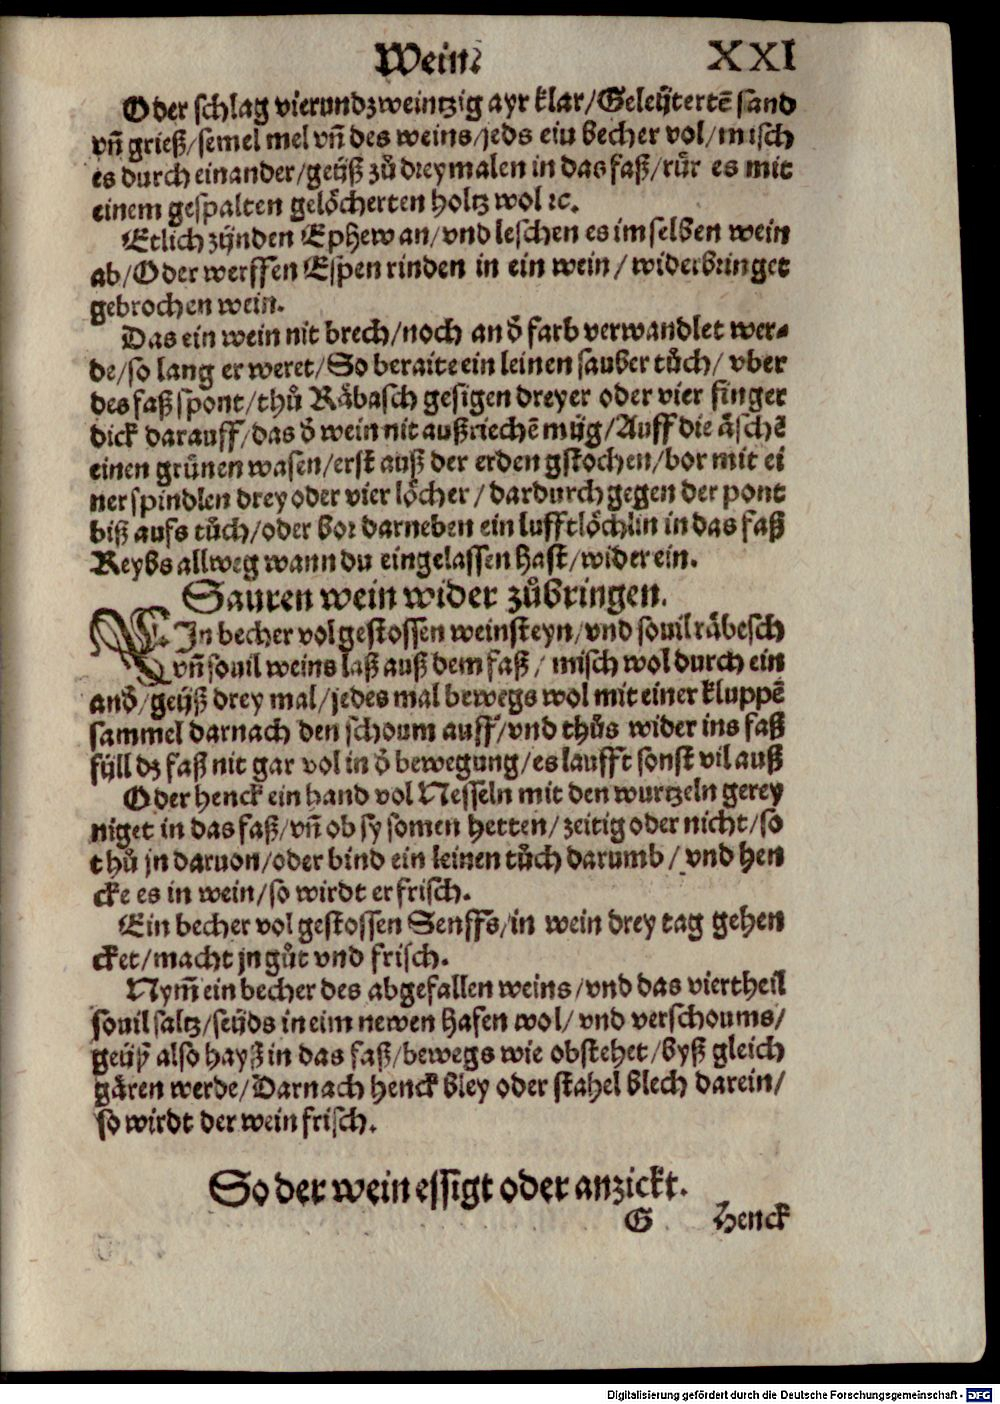 Wein. XXI
Oder schlag vierundzweintzig ayr klar/Geleütertē sand
vn̄ grieß/semel mel vn̄ des weins/jeds ein becher vol/misch
es durch einander/geüß zů dreymalen in das faß/růr es mit
einem gespalten gelöcherten holtz wol ꝛc.
Etlich zünden Ephew an/vnd leschen es im selben wein
ab/Oder werffen Espen rinden in ein wein/widerbringet
gebrochen wein.
Das ein wein nit brech/noch an d̄ farb verwandlet wer-
de/so lang er weret/So beraite ein leinen sauber tůch/vber
des faß spont/thů Räbasch gesigen dreyer oder vier finger
dick darauff/das d̄ wein nit außriechē müg/Auff die äschē
einen grünen wasen/erst auß der erden gstochen/bor mit ei
ner spindlen drey oder vier löcher/dardurch gegen der pont
biß aufs tůch/oder bor darneben ein lufftlöchlin in das faß
Reybs allweg wann du eingelassen hast/wider ein.
Sauren wein wider zůbringen.
EIn becher vol gestossen weinsteyn/vnd souil räbesch
vn̄ souil weins laß auß dem faß/misch wol durch ein
and̄/geüß drey mal/jedes mal bewegs wol mit einer kluppē
sammel darnach den schoum auff/vnd thůs wider ins faß
füll dz faß nit gar vol in d̄ bewegung/es laufft sonst vil auß
Oder henck ein hand vol Nesseln mit den wurtzeln gerey
niget in das faß/vn̄ ob sy somen hetten/zeitig oder nicht/so
thů jn daruon/oder bind ein leinen tůch darumb/vnd hen
cke es in wein/so wirdt er frisch.
Ein becher vol gestossen Senffs/in wein drey tag gehen
cket/macht jn gůt vnd frisch.
Nym̄ ein becher des abgefallen weins/vnd das viertheil
souil saltz/seüds in eim newen hafen wol/vnd verschoums/
geüß also hayß in das faß/bewegs wie obstehet/byß gleich
gären werde/Darnach henck bley oder stahel blech darein/
so wirdt der wein frisch.
So der wein essigt oder anzickt.
G Henck
Digitalisierung gefördert durch die Deutsche Forschungsgemeinschaft - DFG